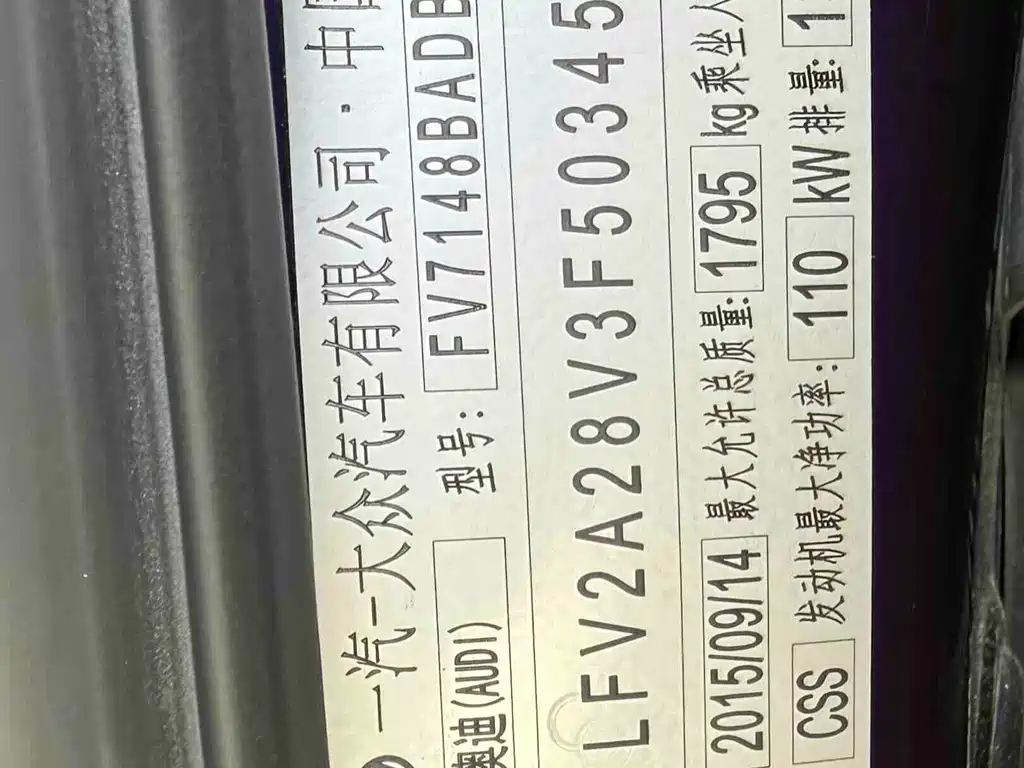 一汽-大众汽车有限公司·中国
奥迪(AUDI) 型号: FV7148BADB
LFV2A28V3F50345
2015/09/14 最大允许总质量: 1795 kg 乘坐人
CSS 发动机最大净功率: 110 kW 排量: 1